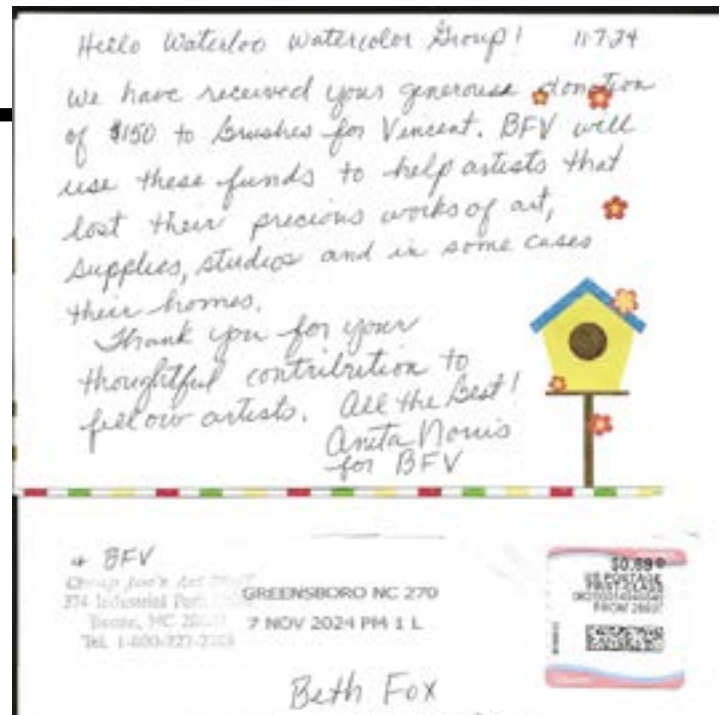 Hello Waterloo Watercolor Group! 11-7-24
We have received your generouse donation
of $150 to Brushes for Vincent. BFV will
use these funds to help artists that
lost their precious works of art,
supplies, studios and in some cases
their homes.
Thank you for your
thoughtful contribution to
fellow artists. All the Best!
Anita Norris
for BFV
BFV
Cheap Joe's Art
374 Industrial Park
Boone, NC
Tel. 1-800-227-
GREENSBORO NC 270
7 NOV 2024 PM 1 L
$0.69
US POSTAGE
FIRST-CLASS
FROM 28607
Beth Fox